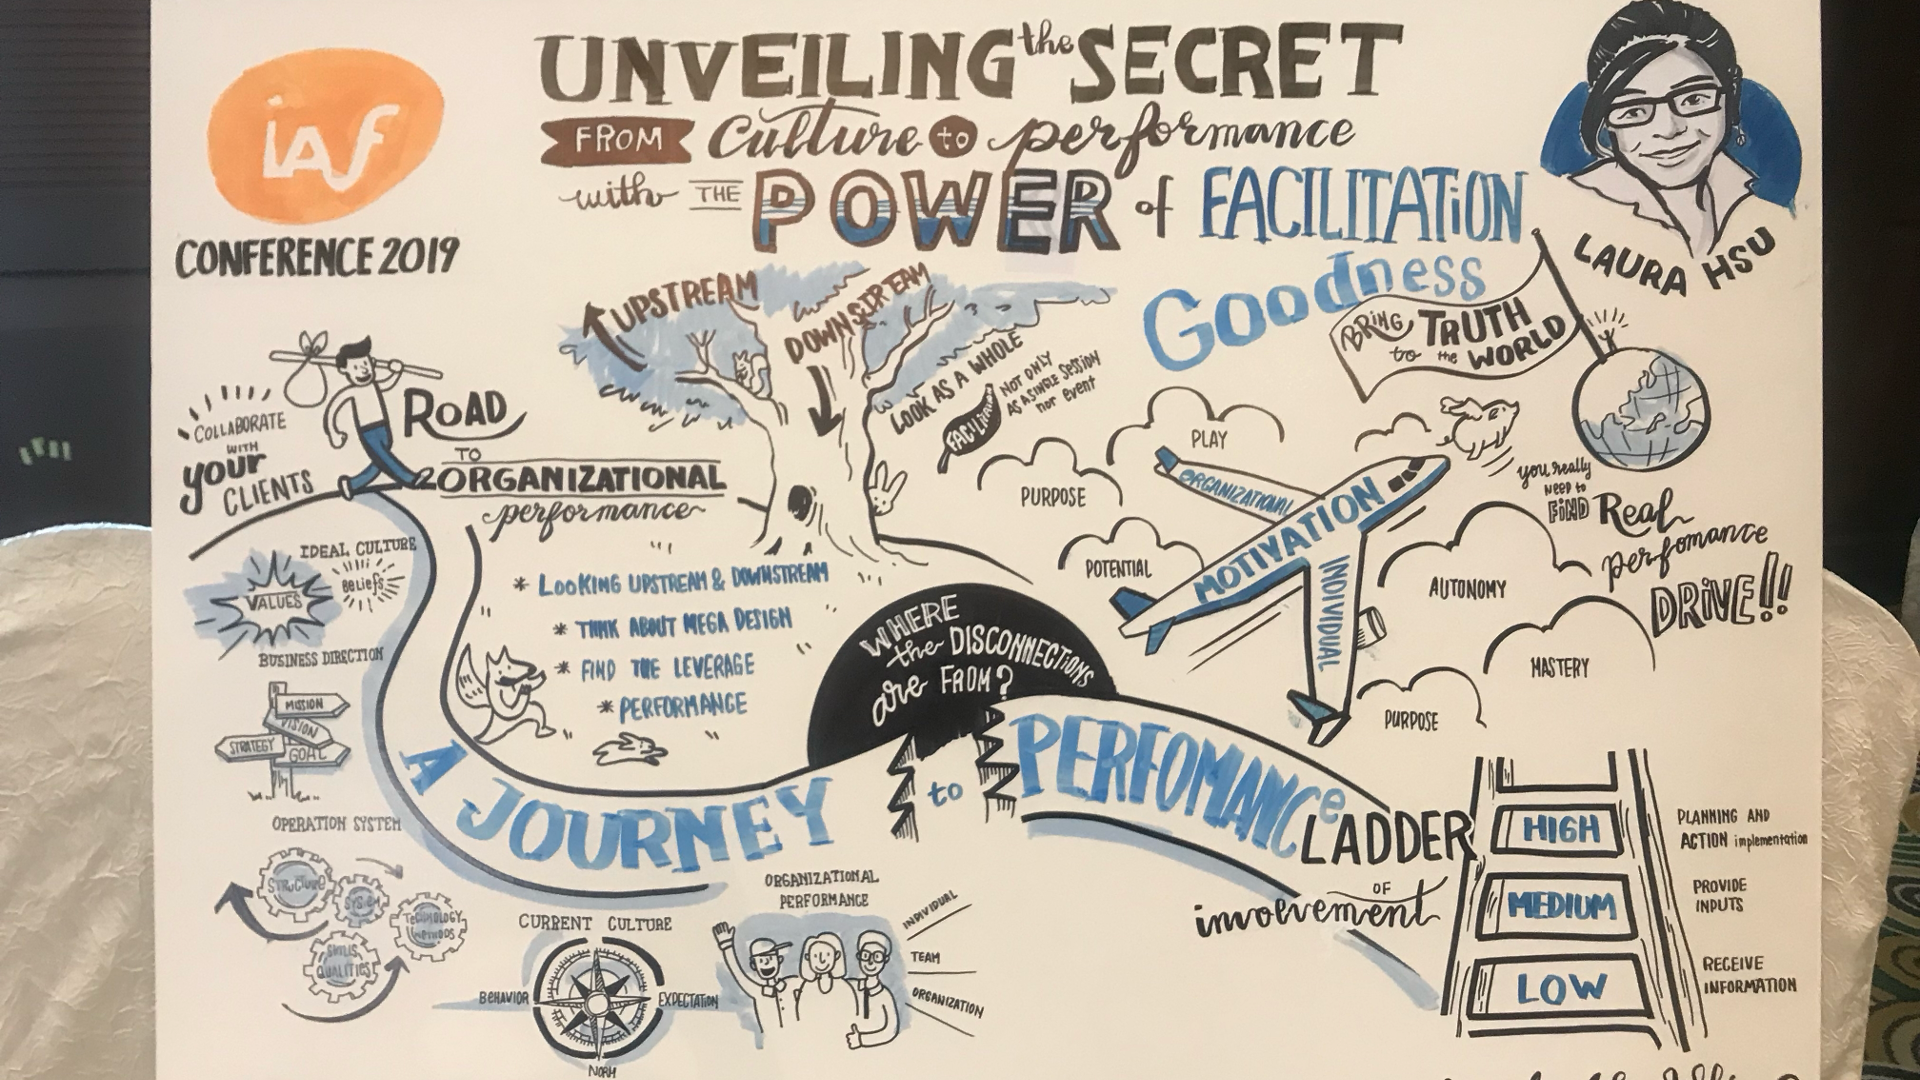 iAf
CONFERENCE 2019
UNVEILING the SECRET
FROM Culture to performance
with THE POWER of FACILITATION
LAURA HSU
Goodness
BRING TRUTH
to the WORLD
UPSTREAM
DOWNSTREAM
LOOK AS A WHOLE
NOT ONLY
AS A SINGLE SESSION
nor event
COLLABORATE
WITH
your
CLIENTS
ROAD
TO
ORGANIZATIONAL
performance
PURPOSE
PLAY
POTENTIAL
ORGANIZATIONAL
MOTIVATION
INDIVIDUAL
AUTONOMY
MASTERY
PURPOSE
you really
NEED to
FiND Real
perfomance
DRiVE!!
IDEAL CULTURE
VALUES
BELiEfS
BUSINESS DIRECTION
MISSION
VISION
STRATEGY
GOAL
OPERATION SYSTEM
STRUCTURE
SYSTEM
TECHNOLOGY
METHODS
SKILLS
QUALITIES
* LOOKING UPSTREAM & DOWNSTREAM
* THINK ABOUT MEGA DESIGN
* FIND THE LEVERAGE
* PERFORMANCE
WHERE
the DISCONNECTIONS
are FROM?
A JOURNEY to PERFOMANCe
CURRENT CULTURE
BEHAVIOR
EXPECTATION
NORM
ORGANIZATIONAL
PERFORMANCE
INDIVIDUAL
TEAM
ORGANIZATION
LADDER
OF
involvement
HIGH
PLANNING AND
ACTION implementation
MEDIUM
PROVIDE
INPUTS
LOW
RECEIVE
INFORMATION